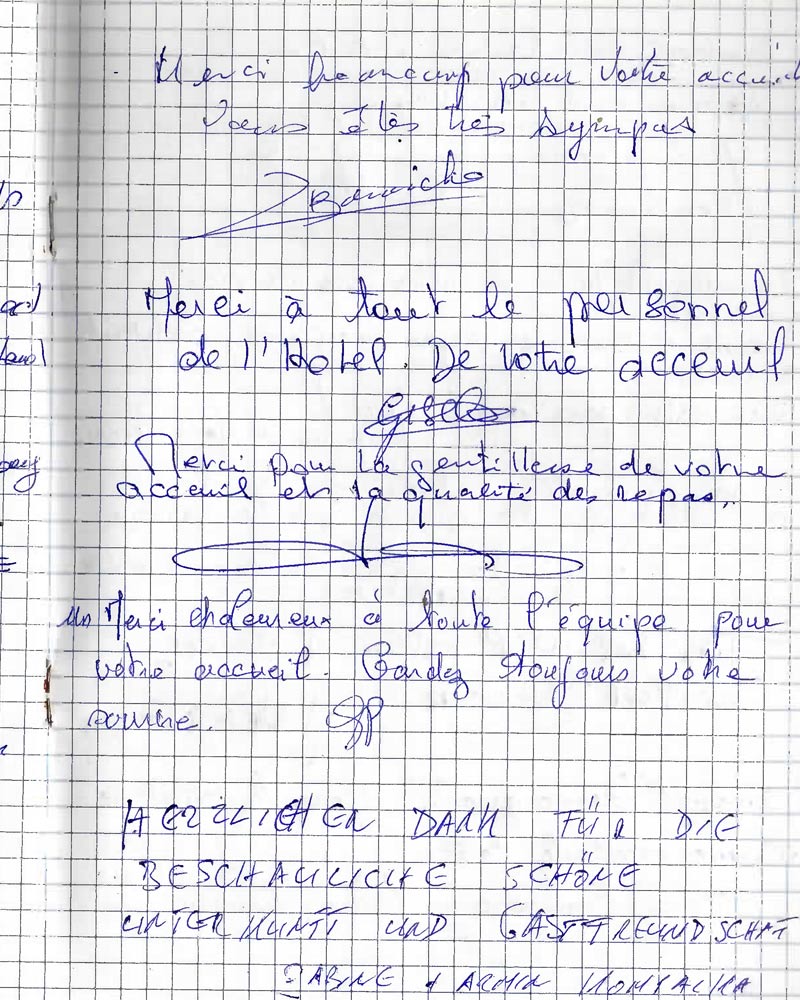 Merci beaucoup pour votre accueil
Vous êtes très sympas
Merci à tout le personnel
de l'Hotel. De votre acceuil
Merci pour la gentillesse de votre
acceuil et la qualité des repas.
un Merci chaleureux à toute l'équipe pour
votre accueil. Gardez toujours votre
sourire.
HERZLICHEN DANK FÜR DIE
BESCHAULICHE SCHÖNE
UNTERKUNFT UND GASTFREUNDSCHAFT
SABINE + ARMIN